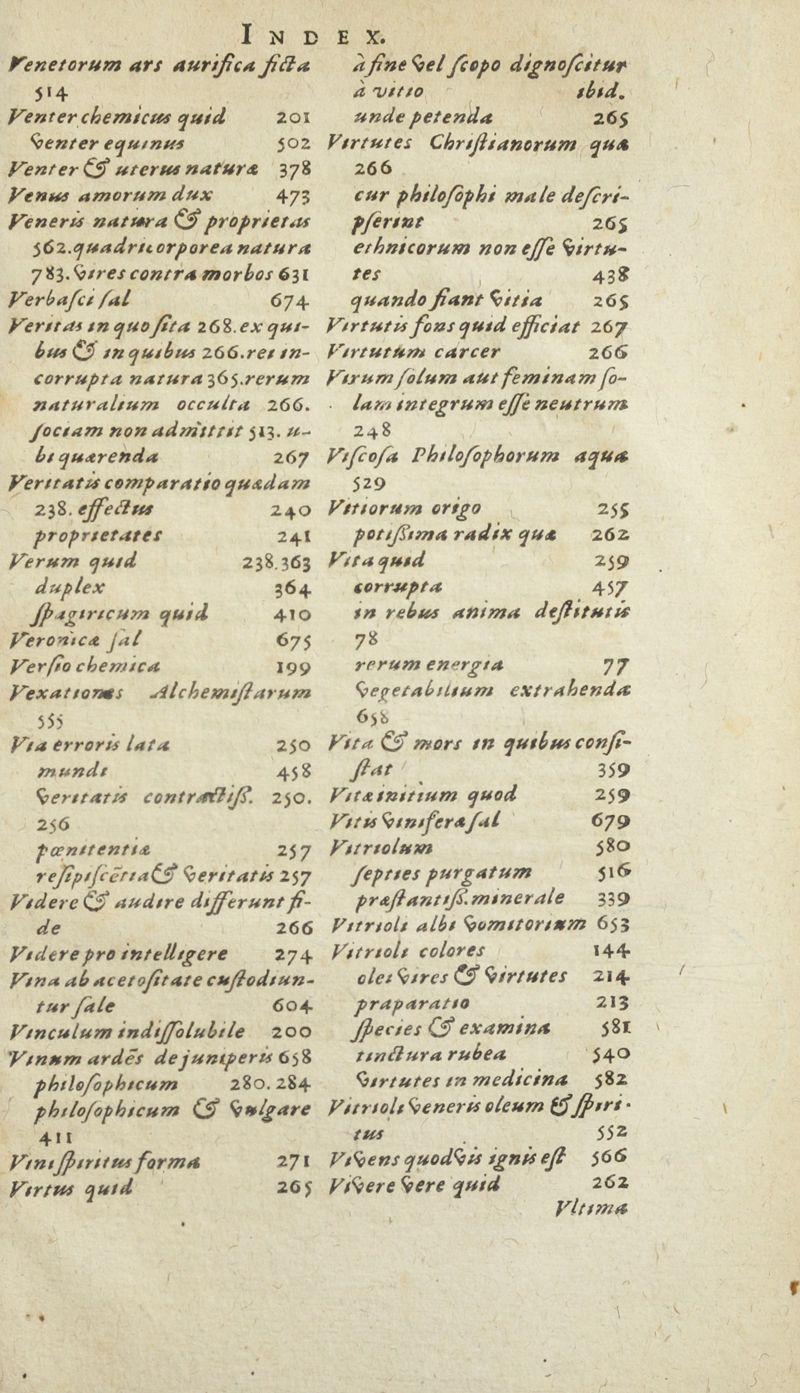 INDEX.
Venetorum ars aurifica ficta
514
Venter chemicus quid 201
venter equinus 502
Venter & uterus naturæ 378
Venus amorum dux 473
Veneris natura & proprietas
562. quadricorporea natura
783. vires contra morbos 631
Verbasci sal 674
Veritas in quo sita 268. ex qui-
bus & in quibus 266. rei in-
corrupta natura 365. rerum
naturalium occulta 266.
sociam non admittit 513. u-
bi quærenda 267
Veritatis comparatio quædam
238. effectus 240
proprietates 241
Verum quid 238. 363
duplex 364
spagiricum quid 410
Veronicæ sal 675
Versio chemica 199
Vexationes Alchemistarum
555
Via erroris lata 250
mundi 458
veritatis contractiss. 250.
256
pœnitentiæ 257
resipiscētia & veritatis 257
Videre & audire differunt fi-
de 266
Videre pro intelligere 274
Vina ab acetositate custodiun-
tur sale 604
Vinculum indissolubile 200
Vinum ardēs de juniperis 658
philosophicum 280. 284
philosophicum & vulgare
411
Vini spiritus forma 271
Virtus quid 265
à fine vel scopo dignoscitur
à vitio ibid.
unde petenda 265
Virtutes Christianorum quæ
266
cur philosophi male descri-
pserint 265
ethnicorum non esse virtu-
tes 438
quando fiant vitia 265
Virtutis fons quid efficiat 267
Virtutum carcer 266
Virum solum aut feminam so-
lam integrum esse neutrum
248
Viscosa Philosophorum aqua
529
Vitiorum origo 255
potissima radix quæ 262
Vita quid 259
corrupta 457
in rebus anima destitutis
78
rerum energia 77
vegetabilium extrahenda
658
Vita & mors in quibus consi-
stat 359
Vitæ initium quod 259
Vitis viniferæ sal 679
Vitriolum 580
septies purgatum 516
præstantiss. minerale 339
Vitrioli albi vomitorium 653
Vitrioli colores 144
olei vires & virtutes 214
præparatio 213
species & examina 581
tinctura rubea 540
virtutes in medicina 582
Vitrioli veneris oleum & spiri-
tus 552
Vivens quodvis ignis est 566
Vivere vere quid 262
Vltima